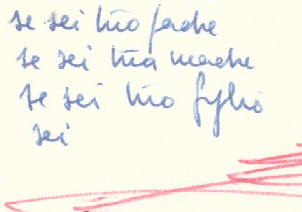 se sei tuo padre
se sei tua madre
se sei tuo figlio
sei